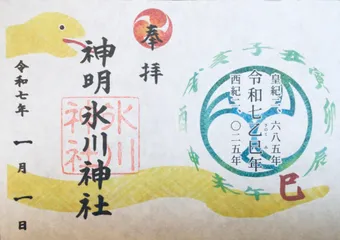 奉拝
神明氷川神社
氷川
神社
令和七年 一月一日
皇紀二、六八五年
令和七乙巳年
西紀二、〇二五年
子
丑
寅
卯
辰
巳
午
未
申
酉
戌
亥